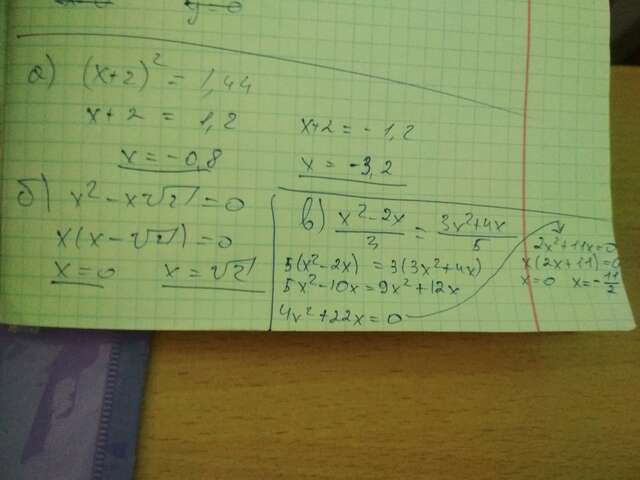 y=0
а) (x+2)² = 1,44
x+2 = 1,2
x+2 = -1,2
x = -0,8
x = -3,2
б) x² - x√2 = 0
x(x-√2) = 0
x=0 x=√2
в) (x²-2x)/3 = (3x²+4x)/5
5(x²-2x) = 3(3x²+4x)
5x²-10x = 9x²+12x
4x²+22x=0
2x²+11x=0
x(2x+11)=0
x=0 x=-11/2